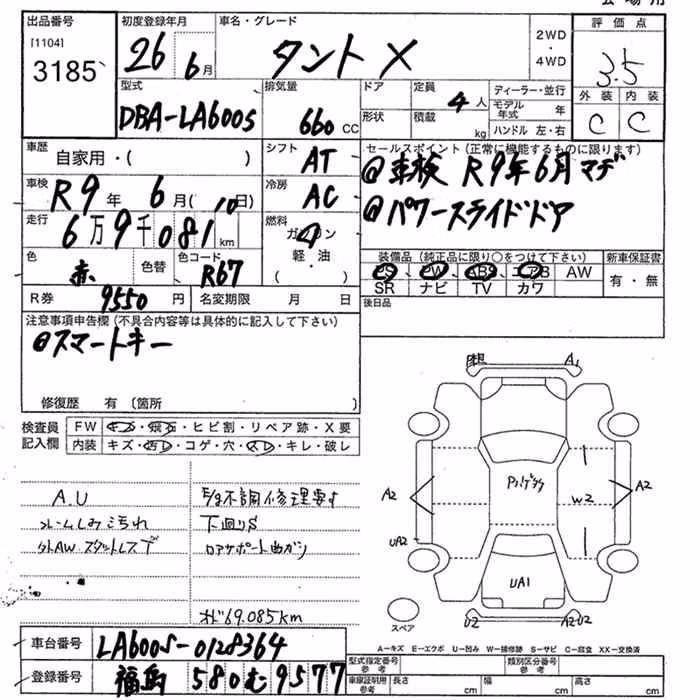 出品番号
[1104]
3185
初度登録年月
26 6月
車名・グレード
タント X
2WD
・
4WD
評価点
3.5
外装 内装
C C
型式
DBA-LA600S
排気量
660 CC
ドア
形状
定員 4 人
積載 kg
ディーラー・並行
モデル年式 年
ハンドル 左・右
車歴
自家用・( )
シフト AT
セールスポイント(正常に機能するものに限ります)
@車検 R9年6月マデ
@パワースライドドア
車検 R9年 6月(10日)
冷房 AC
走行 6万9千081km
燃料
ガソリン
軽・油
( )
色 赤
色替
色コード R67
装備品(純正品に限り○をつけて下さい)
PS PW ABS エアB AW
SR ナビ TV カワ
新車保証書
有・無
R券 9550円
名変期限 月 日
後日品
注意事項申告欄(不具合内容等は具体的に記入して下さい)
@スマートキー
修復歴 有(箇所 )
検査員
記入欄
FW キズ・飛石・ヒビ割・リペア跡・X要
内装 キズ・汚れ・コゲ・穴・スレ・キレ・破レ
A.U
フレームしみ汚れ
外AW.スタットレスデ
不調修理要す
下廻りS
ロアサポート曲ガリ
69.085km
A1
A2
W2
A2
UA2
UA1
U2
A2U2
スペア
A−キズ E−エクボ U−凹み W−補修跡 S−サビ C−腐食 XX−交換済
車台番号 LA600S-0128364
登録番号 福島 580 む 9577
型式指定番号
参考
類別区分番号
参考
車庫証明用
参考
長さ cm
幅 cm
高さ cm